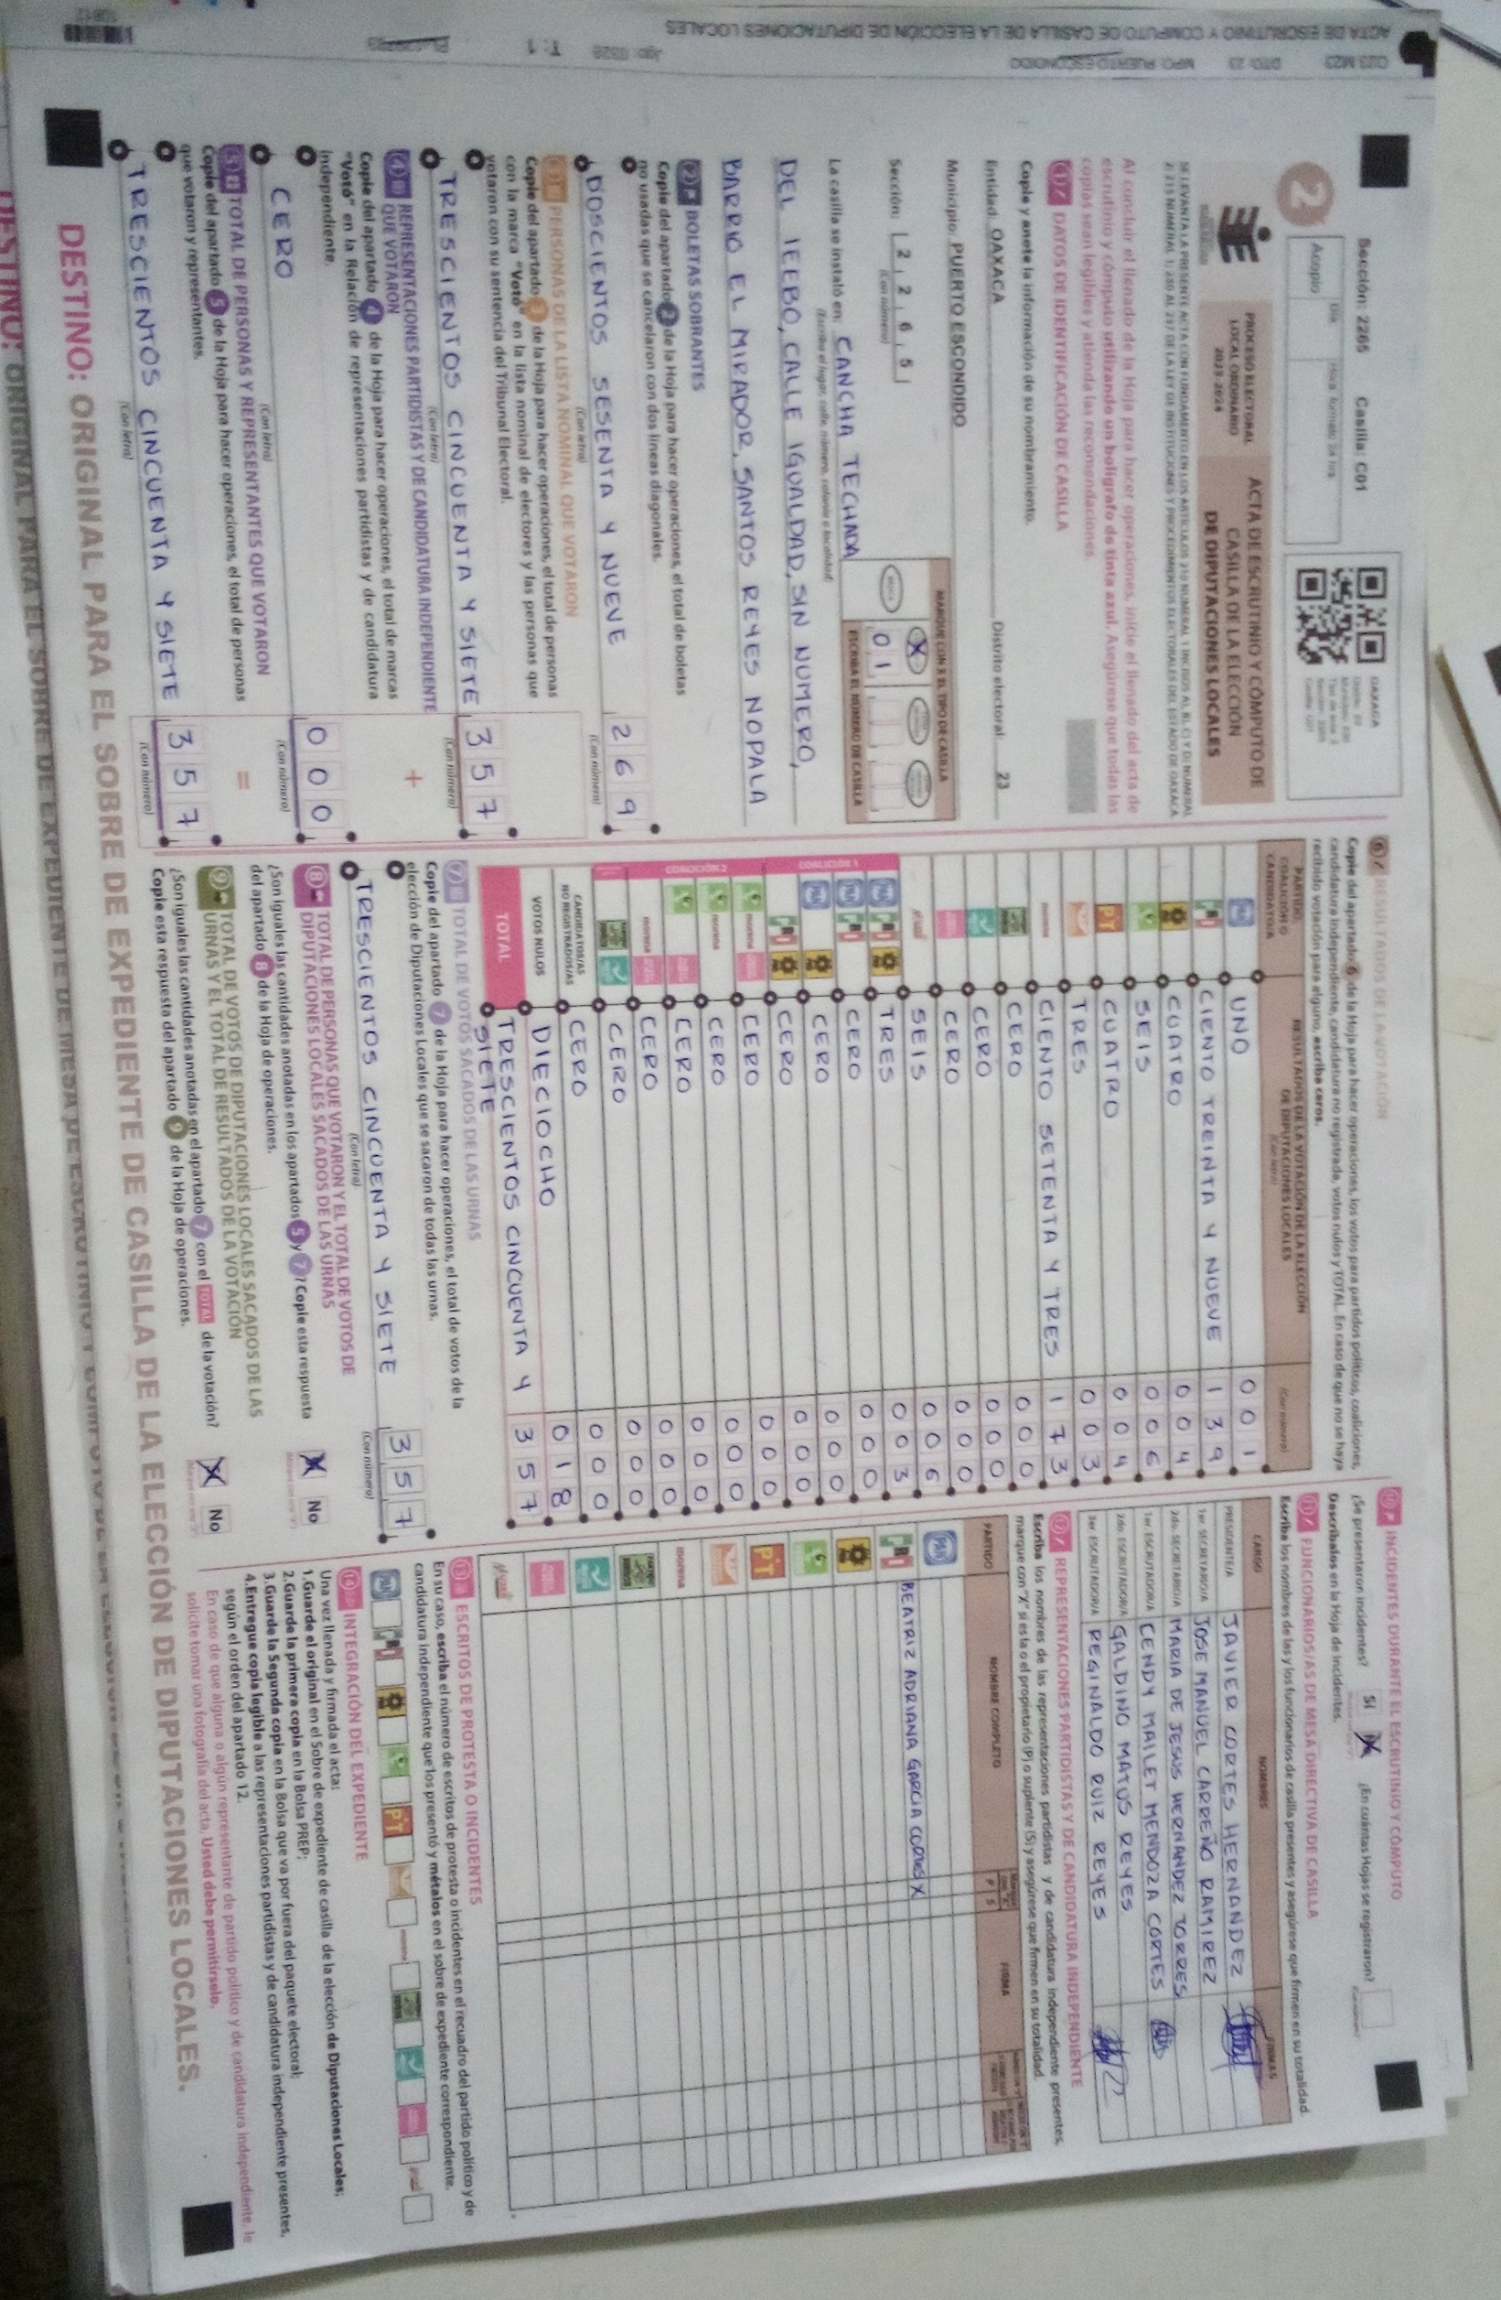 Sección: 2265 Casilla: C01
2
Acopio
Día
PROCESO ELECTORAL
LOCAL ORDINARIO
2023-2024
ACTA DE ESCRUTINIO Y CÓMPUTO DE
CASILLA DE LA ELECCIÓN
DE DIPUTACIONES LOCALES
OAXACA
Al concluir el llenado de la Hoja para hacer operaciones, inicie el llenado del acta de
escrutinio y cómputo utilizando un bolígrafo de tinta azul. Asegúrese que todas las
copias sean legibles y atienda las recomendaciones.
1 DATOS DE IDENTIFICACIÓN DE CASILLA
Copie y anote la información de su nombramiento.
Entidad: OAXACA Distrito electoral 23
Municipio: PUERTO ESCONDIDO
Sección: 2 2 6 5
(Con número)
MARQUE CON X EL TIPO DE CASILLA
X
0 1
ESCRIBA EL NÚMERO DE CASILLA
La casilla se instaló en: CANCHA TECHADA
(Escriba el lugar, calle, número, colonia o localidad)
DEL IEEBO, CALLE IGUALDAD, SIN NUMERO,
BARRIO EL MIRADOR, SANTOS REYES NOPALA
2 BOLETAS SOBRANTES
Copie del apartado 2 de la Hoja para hacer operaciones, el total de boletas
no usadas que se cancelaron con dos líneas diagonales.
DOSCIENTOS SESENTA Y NUEVE 2 6 9
(Con letra) (Con número)
3 PERSONAS DE LA LISTA NOMINAL QUE VOTARON
Copie del apartado 3 de la Hoja para hacer operaciones, el total de personas
con la marca "Votó" en la lista nominal de electores y las personas que
votaron con su sentencia del Tribunal Electoral.
TRESCIENTOS CINCUENTA Y SIETE 3 5 7
(Con letra) (Con número)
4 REPRESENTACIONES PARTIDISTAS Y DE CANDIDATURA INDEPENDIENTE
QUE VOTARON
+
Copie del apartado 4 de la Hoja para hacer operaciones, el total de marcas
"Votó" en la Relación de representaciones partidistas y de candidatura
independiente.
CERO 0 0 0
(Con letra) (Con número)
5 TOTAL DE PERSONAS Y REPRESENTANTES QUE VOTARON
=
Copie del apartado 5 de la Hoja para hacer operaciones, el total de personas
que votaron y representantes.
TRESCIENTOS CINCUENTA Y SIETE 3 5 7
(Con letra) (Con número)
6 RESULTADOS DE LA VOTACIÓN
Copie del apartado 6 de la Hoja para hacer operaciones, los votos para partidos políticos, coaliciones,
candidatura independiente, candidatura no registrada, votos nulos y TOTAL. En caso de que no se haya
recibido votación para alguno, escriba ceros.
PARTIDO,
COALICIÓN O
CANDIDATURA
RESULTADOS DE LA VOTACIÓN DE LA ELECCIÓN
DE DIPUTACIONES LOCALES
(Con letra)
(Con número)
PAN UNO 0 0 1
PRI CIENTO TREINTA Y NUEVE 1 3 9
CUATRO 0 0 4
SEIS 0 0 6
PT CUATRO 0 0 4
TRES 0 0 3
morena CIENTO SETENTA Y TRES 1 7 3
CERO 0 0 0
CERO 0 0 0
CERO 0 0 0
SEIS 0 0 6
COALICIÓN 1
PAN PRI TRES 0 0 3
PAN PRI CERO 0 0 0
PAN CERO 0 0 0
PRI CERO 0 0 0
COALICIÓN 2
morena CERO 0 0 0
morena CERO 0 0 0
CERO 0 0 0
morena CERO 0 0 0
CERO 0 0 0
CANDIDATOS/AS
NO REGISTRADOS/AS CERO 0 0 0
VOTOS NULOS DIECIOCHO 0 1 8
TOTAL TRESCIENTOS CINCUENTA Y 3 5 7
SIETE
7 TOTAL DE VOTOS SACADOS DE LAS URNAS
Copie del apartado 7 de la Hoja para hacer operaciones, el total de votos de la
elección de Diputaciones Locales que se sacaron de todas las urnas.
TRESCIENTOS CINCUENTA Y SIETE 3 5 7
(Con letra) (Con número)
8 TOTAL DE PERSONAS QUE VOTARON Y EL TOTAL DE VOTOS DE
DIPUTACIONES LOCALES SACADOS DE LAS URNAS
¿Son iguales las cantidades anotadas en los apartados 5 y 7? Copie esta respuesta
del apartado 8 de la Hoja de operaciones.
X No
9 TOTAL DE VOTOS DE DIPUTACIONES LOCALES SACADOS DE LAS
URNAS Y EL TOTAL DE RESULTADOS DE LA VOTACIÓN
¿Son iguales las cantidades anotadas en el apartado 7 con el TOTAL de la votación?
Copie esta respuesta del apartado 9 de la Hoja de operaciones.
X No
10 INCIDENTES DURANTE EL ESCRUTINIO Y CÓMPUTO
¿Se presentaron incidentes? Sí X ¿En cuántas Hojas se registraron?
Descríbalos en la Hoja de Incidentes.
11 FUNCIONARIOS/AS DE MESA DIRECTIVA DE CASILLA
Escriba los nombres de las y los funcionarios de casilla presentes y asegúrese que firmen en su totalidad.
CARGO NOMBRES FIRMAS
PRESIDENTE/A JAVIER CORTES HERNANDEZ
1er. SECRETARIO/A JOSE MANUEL CARREÑO RAMIREZ
2do. SECRETARIO/A MARIA DE JESUS HERNANDEZ TORRES
1er. ESCRUTADOR/A CENDY MAILET MENDOZA CORTES
2do. ESCRUTADOR/A GALDINO MATUS REYES
3er. ESCRUTADOR/A REGINALDO RUIZ REYES
12 REPRESENTACIONES PARTIDISTAS Y DE CANDIDATURA INDEPENDIENTE
Escriba los nombres de las representaciones partidistas y de candidatura independiente presentes,
marque con "X" si es la o el propietario (P) o suplente (S) y asegúrese que firmen en su totalidad.
PARTIDO NOMBRE COMPLETO P S FIRMA
PAN
PRI BEATRIZ ADRIANA GARCIA X
PT
morena
13 ESCRITOS DE PROTESTA O INCIDENTES
En su caso, escriba el número de escritos de protesta o incidentes en el recuadro del partido político y de
candidatura independiente que los presentó y métalos en el sobre de expediente correspondiente.
PAN PRI PT
14 INTEGRACIÓN DEL EXPEDIENTE
Una vez llenada y firmada el acta:
1.Guarde el original en el Sobre de expediente de casilla de la elección de Diputaciones Locales;
2.Guarde la primera copia en la Bolsa PREP;
3.Guarde la Segunda copia en la Bolsa que va por fuera del paquete electoral;
4.Entregue copia legible a las representaciones partidistas y de candidatura independiente presentes,
según el orden del apartado 12.
En caso de que alguna o algún representante de partido político y de candidatura independiente, le
solicite tomar una fotografía del acta, Usted debe permitírselo.
DESTINO: ORIGINAL PARA EL SOBRE DE EXPEDIENTE DE CASILLA DE LA ELECCIÓN DE DIPUTACIONES LOCALES.
DESTINO: ORIGINAL PARA EL SOBRE DE EXPEDIENTE DE MESA DE ESCRUTINIO Y
ACTA DE ESCRUTINIO Y COMPUTO DE CASILLA DE LA ELECCIÓN DE DIPUTACIONES LOCALES
DTO: 23 MPO: PUERTO ESCONDIDO
T: 1